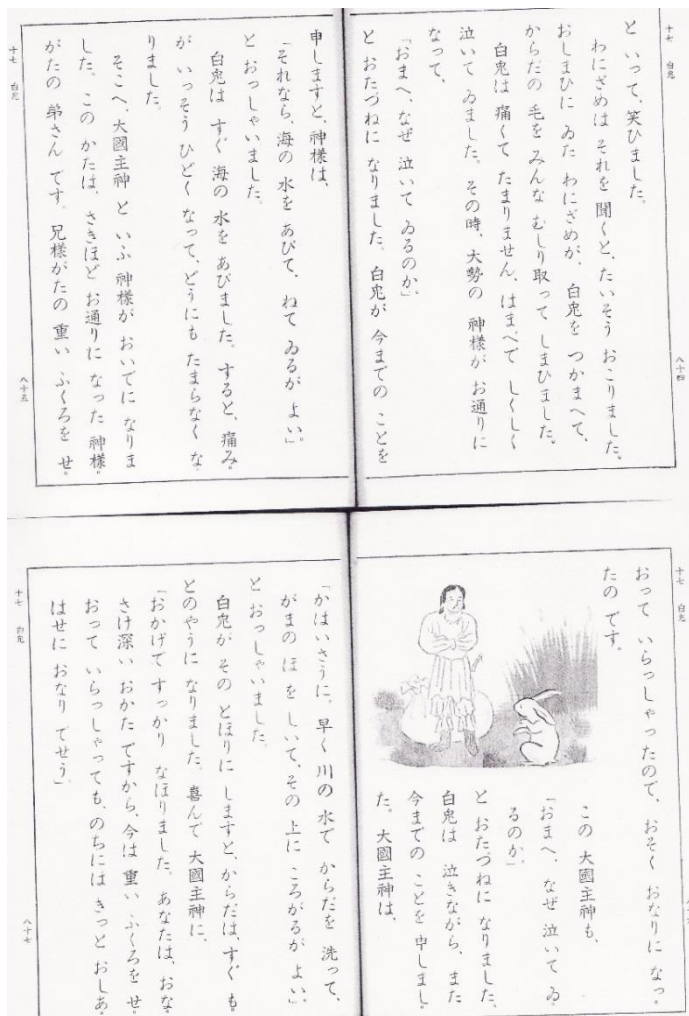 十七 白兎
八十四
と いって、笑ひました。
わにざめは それを 聞くと、たいそう おこりました。
おしまひに ゐた わにざめが、白兎を つかまへて、
からだの 毛を みんな むしり取って しまひました。
白兎は 痛くて たまりません、はまべで しくしく
泣いて ゐました。その時、大勢の 神様が お通りに
なって、
「おまへ、なぜ 泣いて ゐるのか。」
と おたづねに なりました。白兎が 今までの ことを
申しますと、神様は、
「それなら、海の 水を あびて、ねて ゐるが よい。」
と おっしゃいました。
白兎は すぐ 海の 水を あびました。すると、痛み
が いっそう ひどく なって、どうにも たまらなく な
りました。
そこへ、大國主神 と いふ 神様が おいでに なりま
した。この かたは、さきほど お通りに なった 神様
がたの 弟さん です。兄様がたの 重い ふくろを せ
十七 白兎
八十五
十七 白兎
おって いらっしゃったので、おそく おなりに なっ
たの です。
この 大國主神も、
「おまへ、なぜ 泣いて ゐ
るのか。」
と おたづねに なりました。
白兎は 泣きながら、また
今までの ことを 申しまし
た。大國主神は、
「かはいさうに、早く 川の 水で からだを 洗って、
がまの ほを しいて、その 上に ころがるが よい。」
と おっしゃいました。
白兎が その とほりに しますと、からだは、すぐ も
とのやうに なりました。喜んで 大國主神に、
「おかげで すっかり なほりました。あなたは、おな
さけ深い おかた ですから、今は 重い ふくろを せ
おって いらっしゃっても、のちには きっと おしあ
はせに おなり でせう。」
十七 白兎
八十七